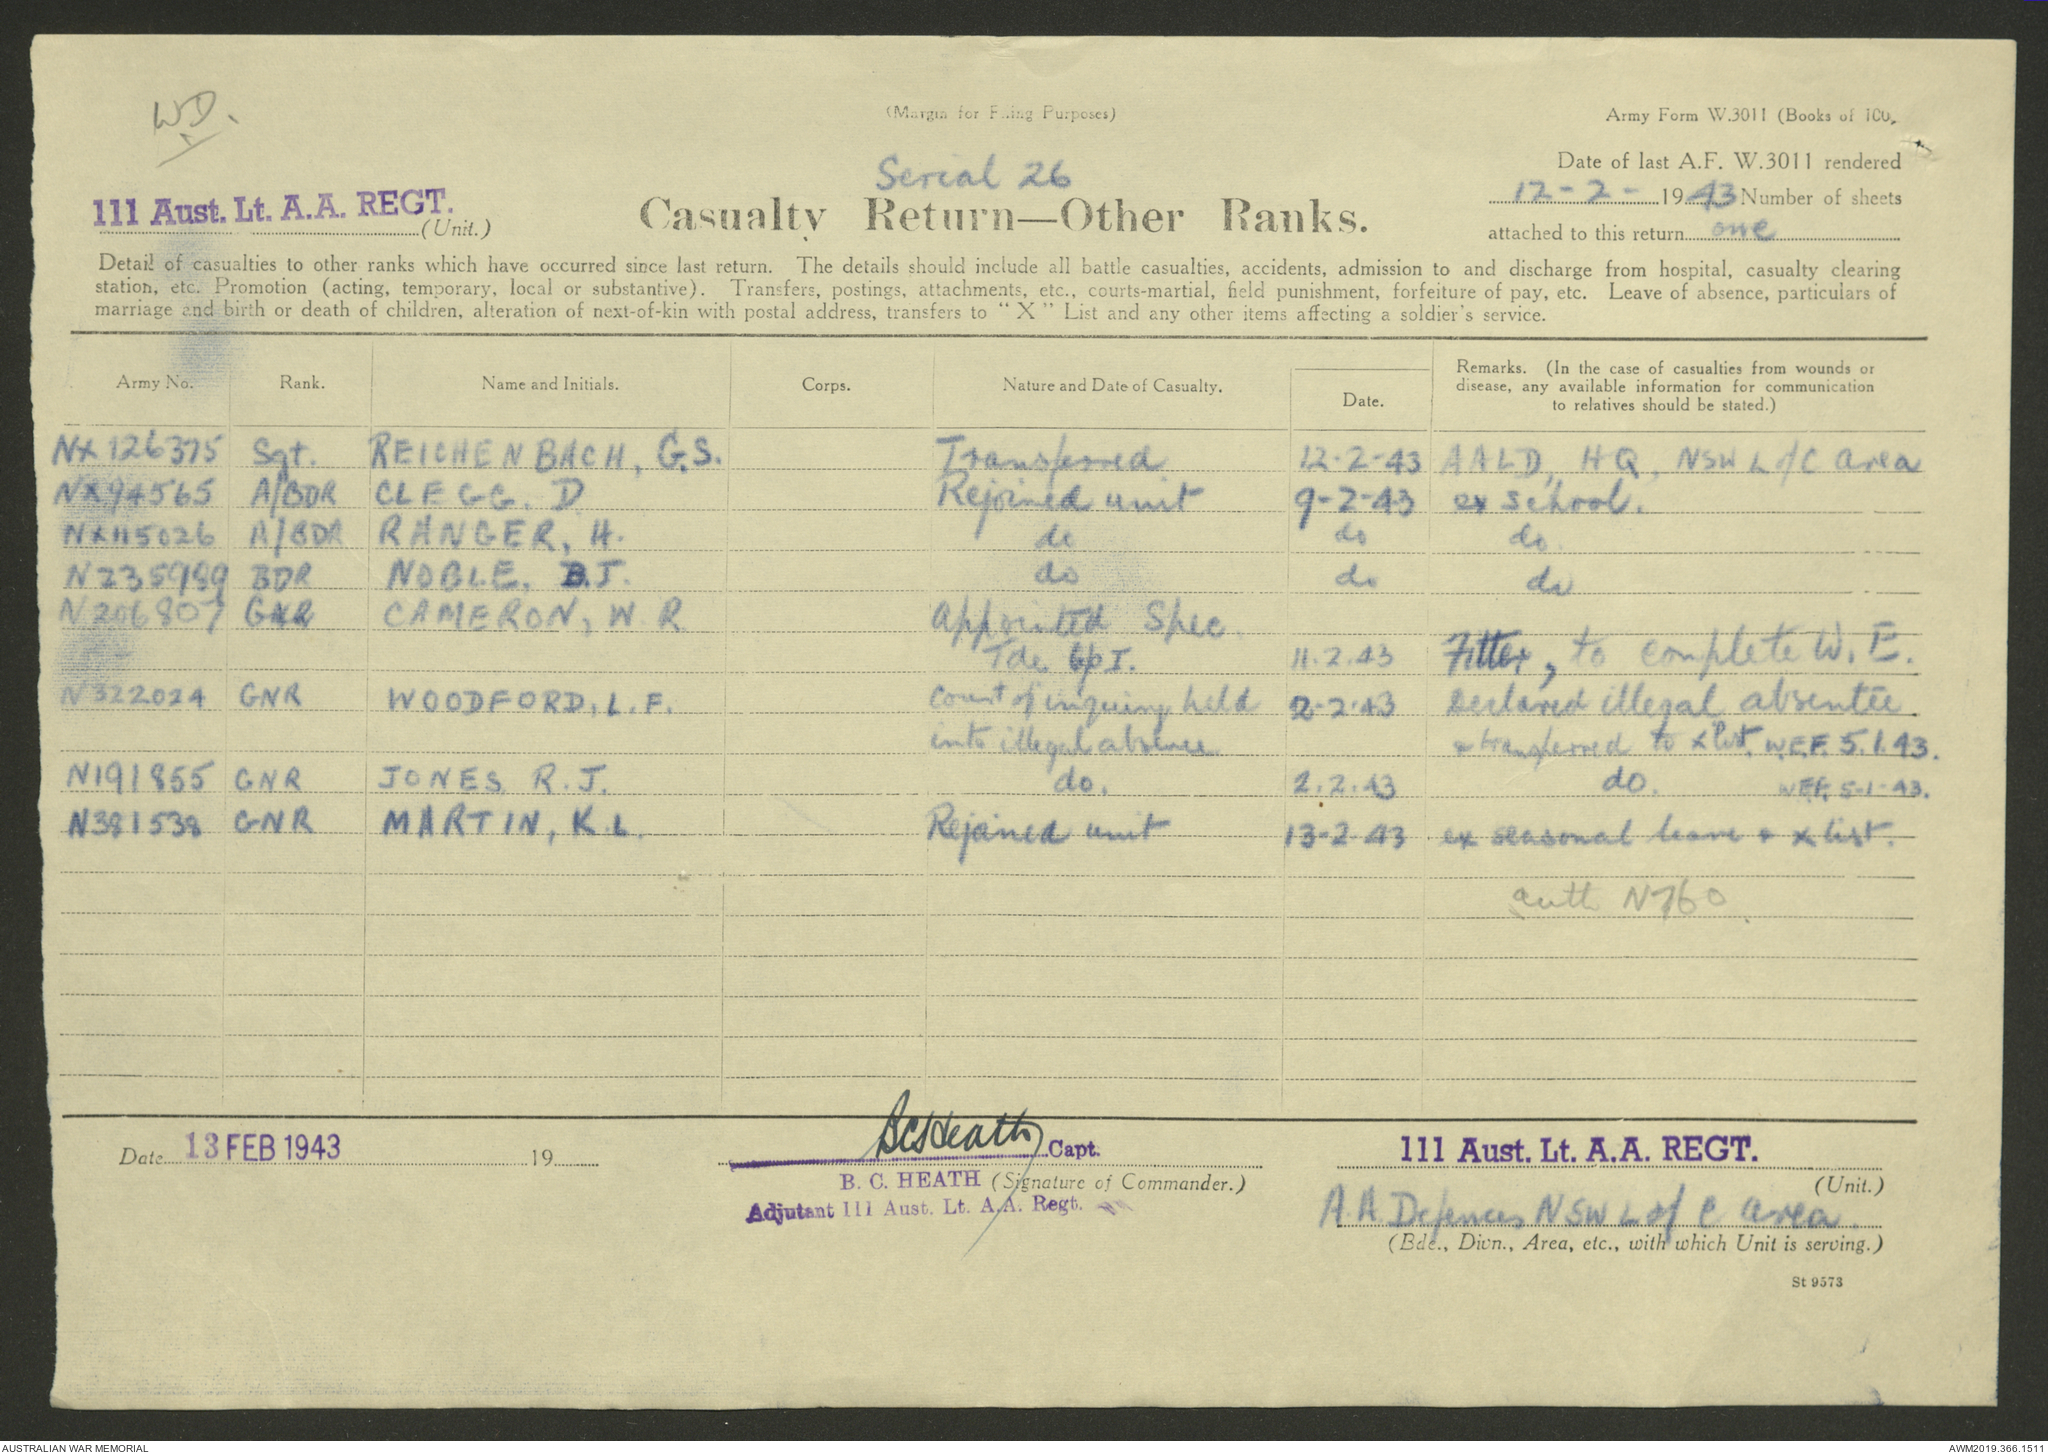 WD.
(Margin for Filing Purposes)
Army Form W.3011 (Books of 100,
Serial 26
Date of last A.F. W.3011 rendered
12-2-1943 Number of sheets
attached to this return one
111 Aust. Lt. A.A. REGT.
(Unit.)
Casualty Return—Other Ranks.
Detail of casualties to other ranks which have occurred since last return. The details should include all battle casualties, accidents, admission to and discharge from hospital, casualty clearing
station, etc. Promotion (acting, temporary, local or substantive). Transfers, postings, attachments, etc., courts-martial, field punishment, forfeiture of pay, etc. Leave of absence, particulars of
marriage and birth or death of children, alteration of next-of-kin with postal address, transfers to "X" List and any other items affecting a soldier's service.
Army No. Rank. Name and Initials. Corps. Nature and Date of Casualty. Date. Remarks. (In the case of casualties from wounds or
disease, any available information for communication
to relatives should be stated.)
NX126375 Sgt. REICHENBACH, G.S. Transferred 12-2-43 AALD, HQ, NSW L of C area
NX94565 A/BDR CLEGG. D Rejoined unit 9-2-43 ex school.
NX115026 A/BDR RANGER, H. do do do.
N235989 BDR NOBLE, B.J. do do do
N206807 GNR CAMERON, W R appointed Spec.
Tde Gp I. 11.2.43 Fitter, to complete W.E.
N322024 GNR WOODFORD, L.F. Court of inquiry held 2-2-43 declared illegal absentee
into illegal absence & transferred to x list. W.E.F. 5.1.43.
N191855 GNR JONES R.J. do. 2.2.43 do. W.E.F. 5-1-43.
N381538 GNR MARTIN, K.L. Rejoined unit 13-2-43 ex seasonal leave & x list.
auth N760.
Date 13 FEB 1943 19
BCHeath Capt.
B. C. HEATH (Signature of Commander.)
Adjutant 111 Aust. Lt. A.A. Regt.
111 Aust. Lt. A.A. REGT.
(Unit.)
A.A. Defences NSW L of C area.
(Bde., Divn., Area, etc., with which Unit is serving.)
St 9573
AUSTRALIAN WAR MEMORIAL
AWM2019.366.1511